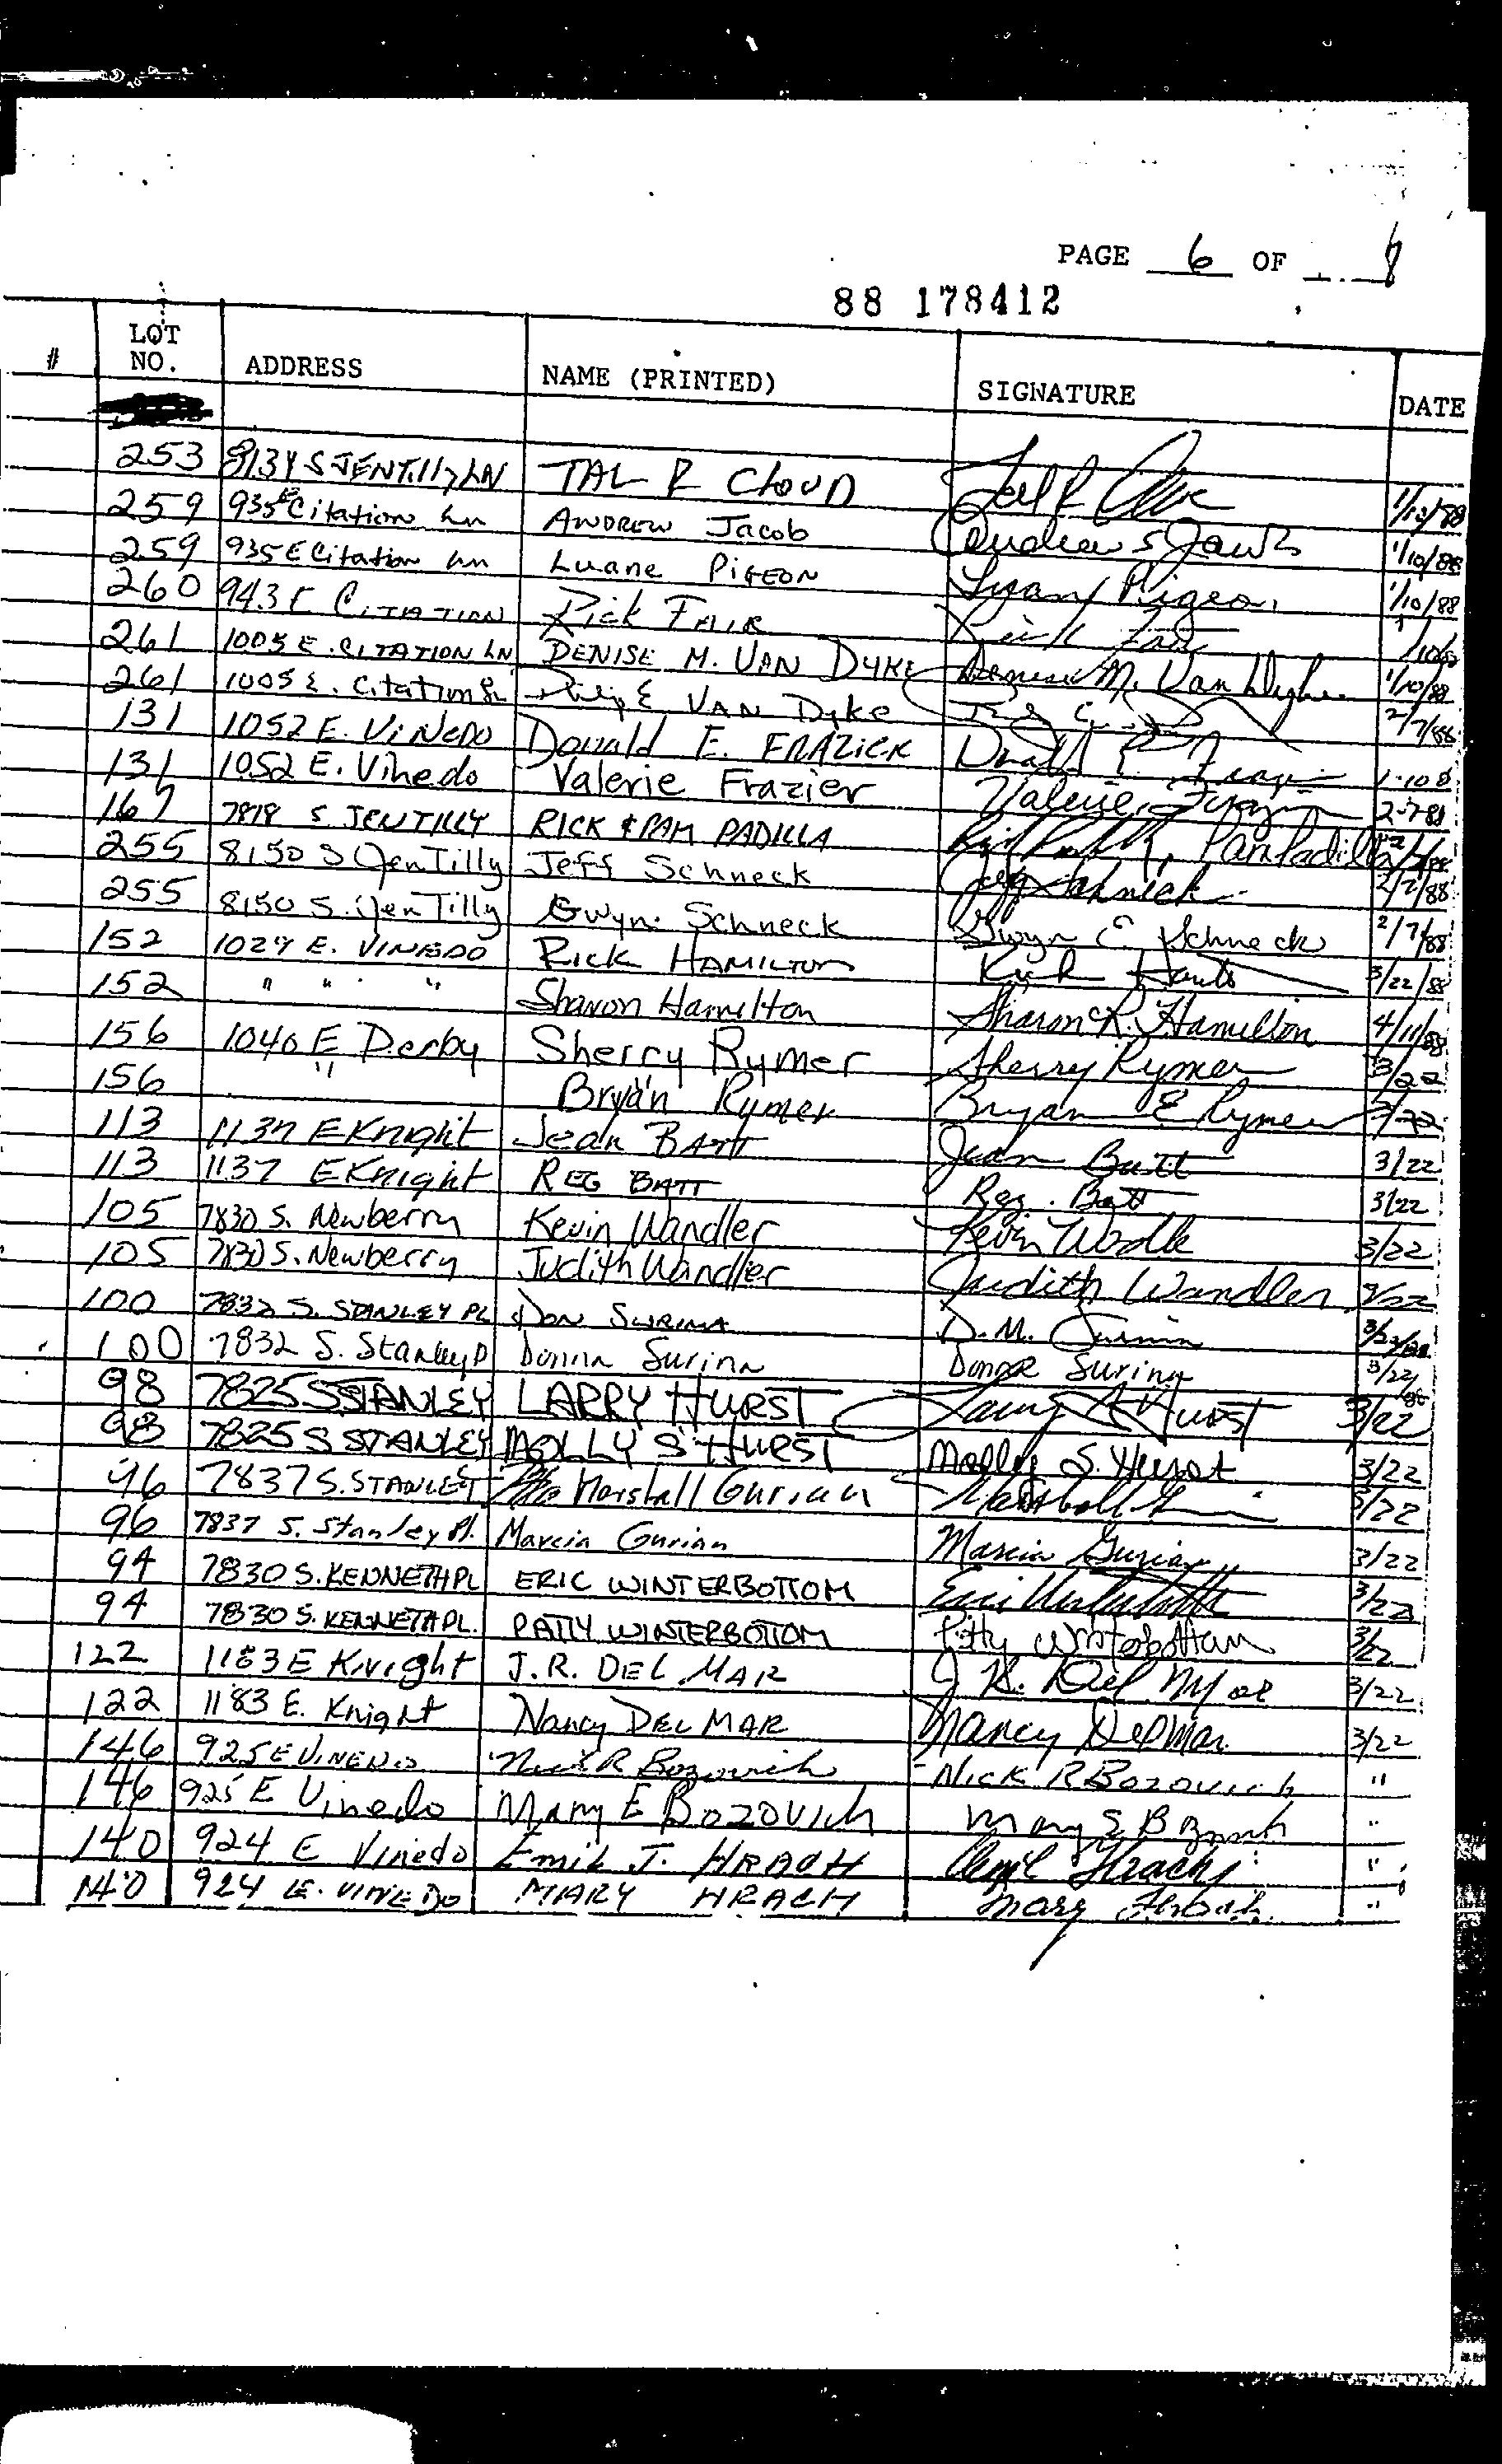 PAGE 6 OF
88 178412
# LOT NO. ADDRESS NAME (PRINTED) SIGNATURE DATE
253 8134 S JENTILLY LN TAL R CLOUD 1/10/88
259 935 E Citation Ln ANDREW Jacob 1/10/88
259 935 E Citation Ln Luane PIGEON 1/10/88
260 943 E CITATION Rick FAIR Rick Fair
261 1005 E. CITATION LN DENISE M. VAN DYKE Denise M. Van Dyke 1/10/88
261 1005 E. Citation Philip E VAN Dyke 2/7/88
131 1052 E. ViNeDO Donald E. FRAZIER Donald E. 1-10-8
131 1052 E. Vinedo Valerie Frazier Valerie Frazier 2-7-88
167 7818 S. JENTILLY RICK & PAM PADILLA Pam Padilla
255 8150 S JenTilly Jeff Schneck Jeff Schneck 2/7/88
255 8150 S. JenTilly Gwyn Schneck Gwyn E Schneck 2/7/88
152 1024 E. VINEDO Rick HAMILTON 3/22/88
152 " " " Sharon Hamilton Sharon R. Hamilton 4/11/88
156 1040 E Derby Sherry Rymer Sherry Rymer 3/22
156 " Bryan Rymer Bryan E Rymer 3/22
113 1137 E Knight Jean BATT Jean Batt 3/22
113 1137 E Knight REG BATT Reg. Batt 3/22
105 7830 S. Newberry Kevin Wandler Kevin 3/22
105 7830 S. Newberry Judith Wandler Judith Wandler 3/22
100 7832 S. STANLEY PL DON SURINA D. M. Surina
100 7832 S. Stanley P Donna Surina Donna Surina 3/22/88
98 7825 S STANLEY LARRY HURST Larry Hurst 3/22
98 7825 S STANLEY MOLLY S HURST Molly S. Hurst 3/22
96 7837 S. STANLEY Marshall Gurian Marshall 3/22
96 7837 S. Stanley Pl. Marcia Gurian Marcia Gurian 3/22
94 7830 S. KENNETH PL ERIC WINTERBOTTOM Eric Winterbottom 3/22
94 7830 S. KENNETH PL. PATTY WINTERBOTTOM Patty Winterbottom 3/22
122 1183 E Knight J. R. DEL MAR J. R. Del Mar 3/22
122 1183 E. Knight Nancy DEL MAR Nancy Del Mar 3/22
146 925 E VINEDO Nick R Bozovich Nick R Bozovich "
146 925 E Vinedo Mary E BOZOVICH Mary E "
140 924 E Vinedo Emil J. HRACH Emil Hrach "
140 924 E. VINEDO MARY HRACH Mary Hrach "